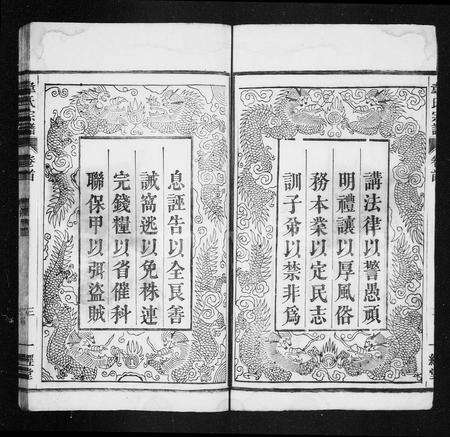 講法律以警愚頑
明禮讓以厚風俗
務本業以定民志
訓子弟以禁非為
息誣告以全良善
誡窩逃以免株連
完錢糧以省催科
聯保甲以弭盜賊
章氏宗譜
卷首
三
一經堂